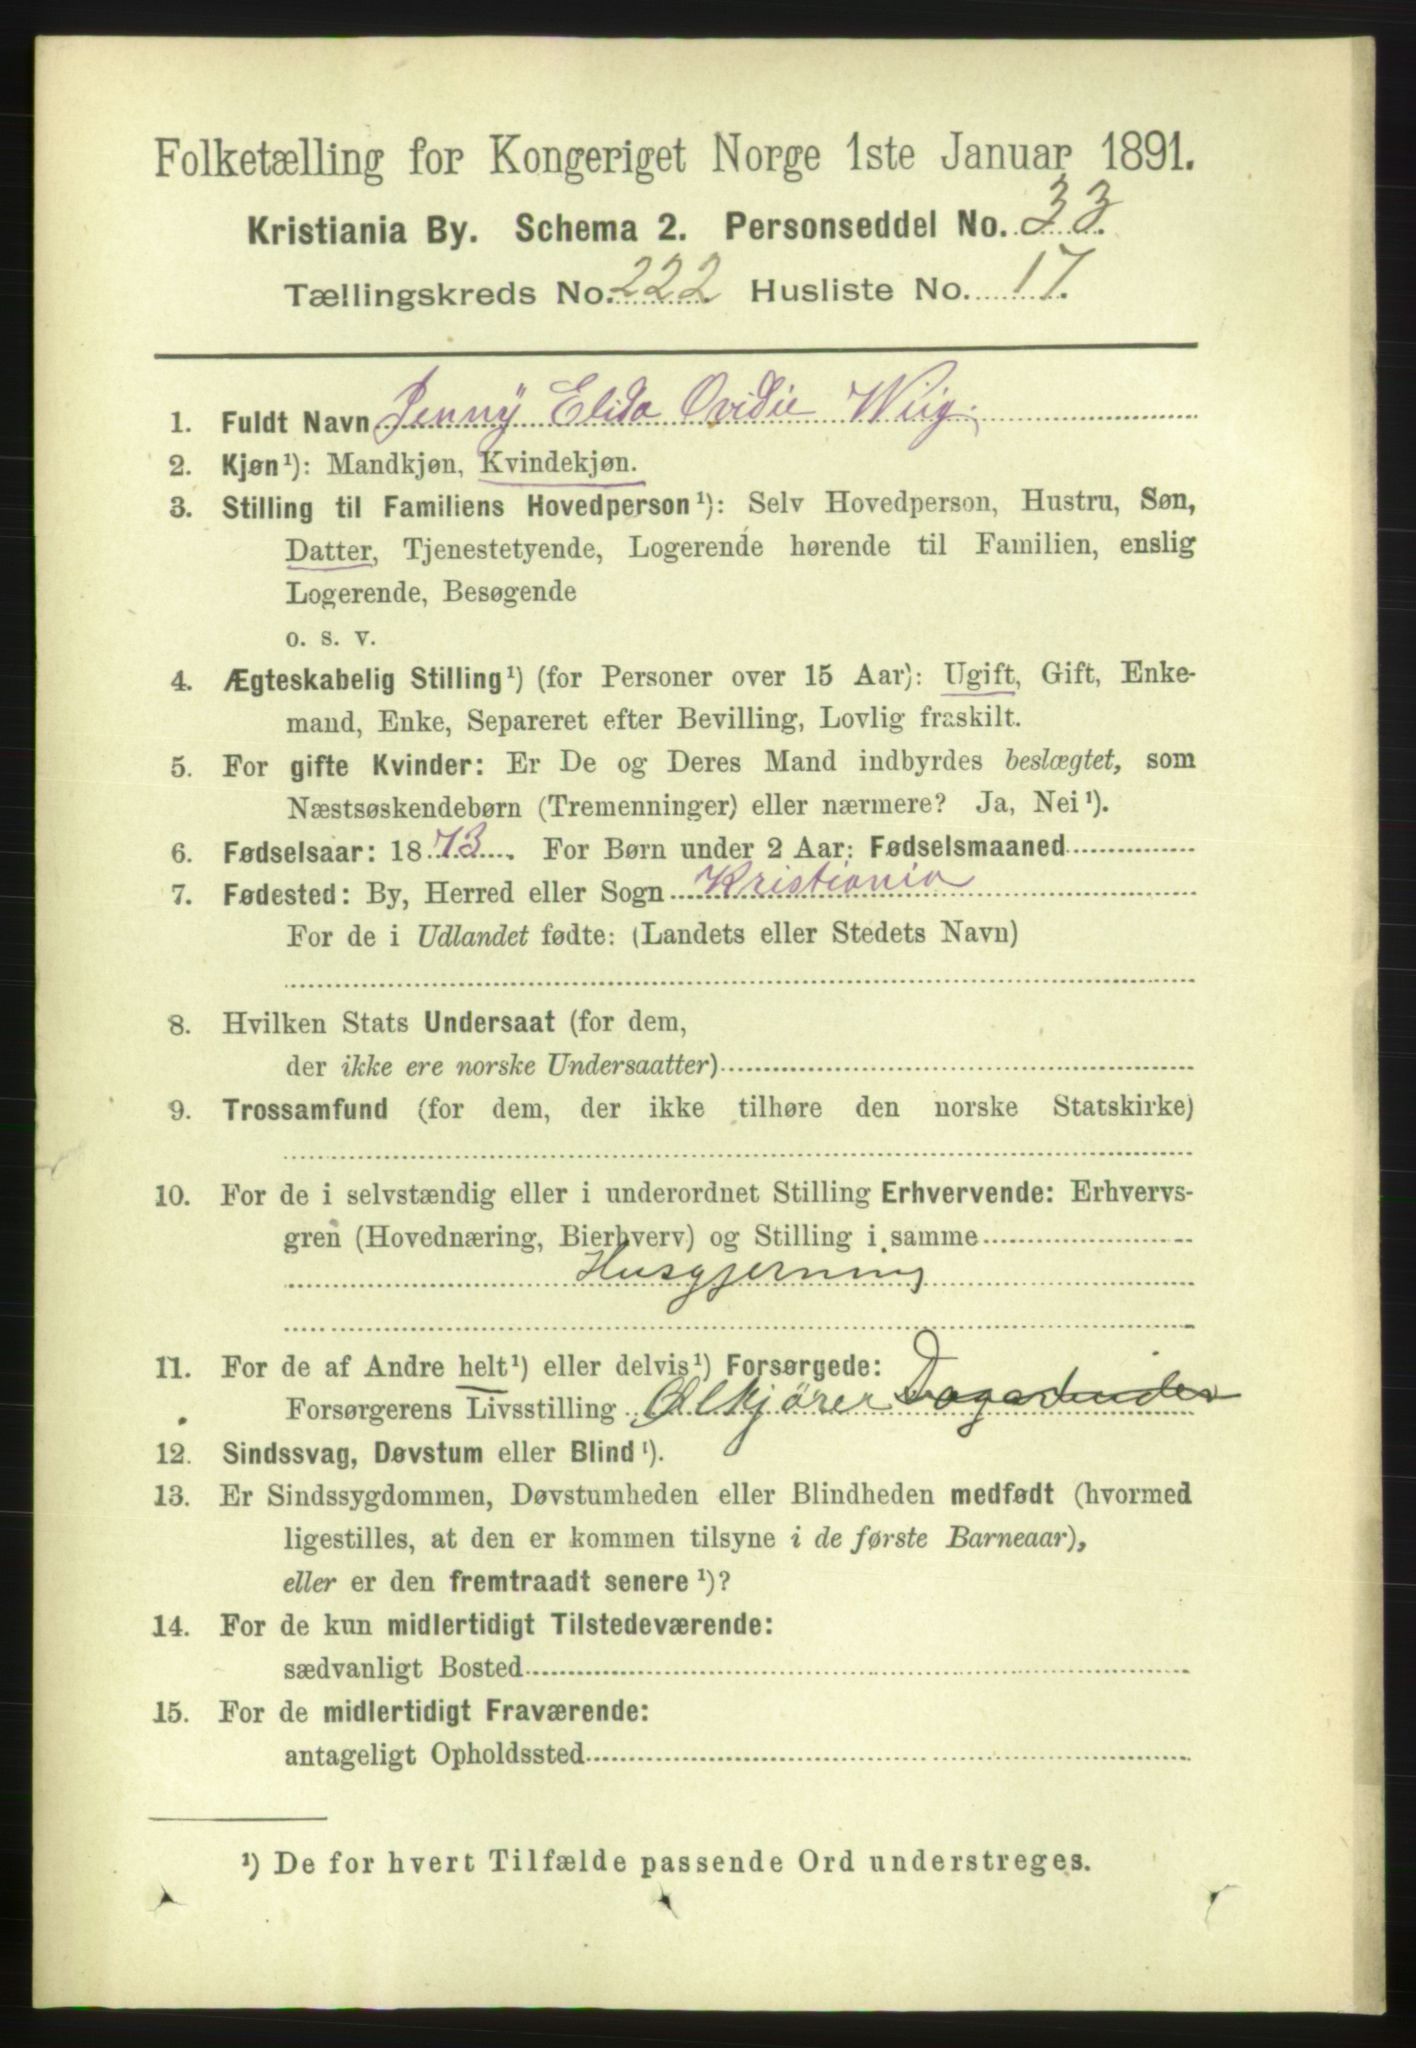 Folketælling for Kongeriget Norge 1ste Januar 1891.
Kristiania By. Schema 2. Personseddel No. 33.
Tællingskreds No. 222 Husliste No. 17.
1. Fuldt Navn Jenny Elida Ovidie Wiig.
2. Kjøn¹): Mandkjøn, Kvindekjøn.
3. Stilling til Familiens Hovedperson¹): Selv Hovedperson, Hustru, Søn,
Datter, Tjenestetyende, Logerende hørende til Familien, enslig
Logerende, Besøgende
o. s. v.
4. Ægteskabelig Stilling¹) (for Personer over 15 Aar): Ugift, Gift, Enke-
mand, Enke, Separeret efter Bevilling, Lovlig fraskilt.
5. For gifte Kvinder: Er De og Deres Mand indbyrdes beslægtet, som
Næstsøskendebørn (Tremenninger) eller nærmere? Ja, Nei¹).
6. Fødselsaar: 1873. For Børn under 2 Aar: Fødselsmaaned
7. Fødested: By, Herred eller Sogn Kristiania
For de i Udlandet fødte: (Landets eller Stedets Navn)
8. Hvilken Stats Undersaat (for dem,
der ikke ere norske Undersaatter)
9. Trossamfund (for dem, der ikke tilhøre den norske Statskirke)
10. For de i selvstændig eller i underordnet Stilling Erhvervende: Erhvervs-
gren (Hovednæring, Bierhverv) og Stilling i samme
Husgjerning
11. For de af Andre helt¹) eller delvis¹) Forsørgede:
Forsørgerens Livsstilling Ølkjører
12. Sindssvag, Døvstum eller Blind¹).
13. Er Sindssygdommen, Døvstumheden eller Blindheden medfødt (hvormed
ligestilles, at den er kommen tilsyne i de første Barneaar),
eller er den fremtraadt senere¹)?
14. For de kun midlertidigt Tilstedeværende:
sædvanligt Bosted
15. For de midlertidigt Fraværende:
antageligt Opholdssted
¹) De for hvert Tilfælde passende Ord understreges.